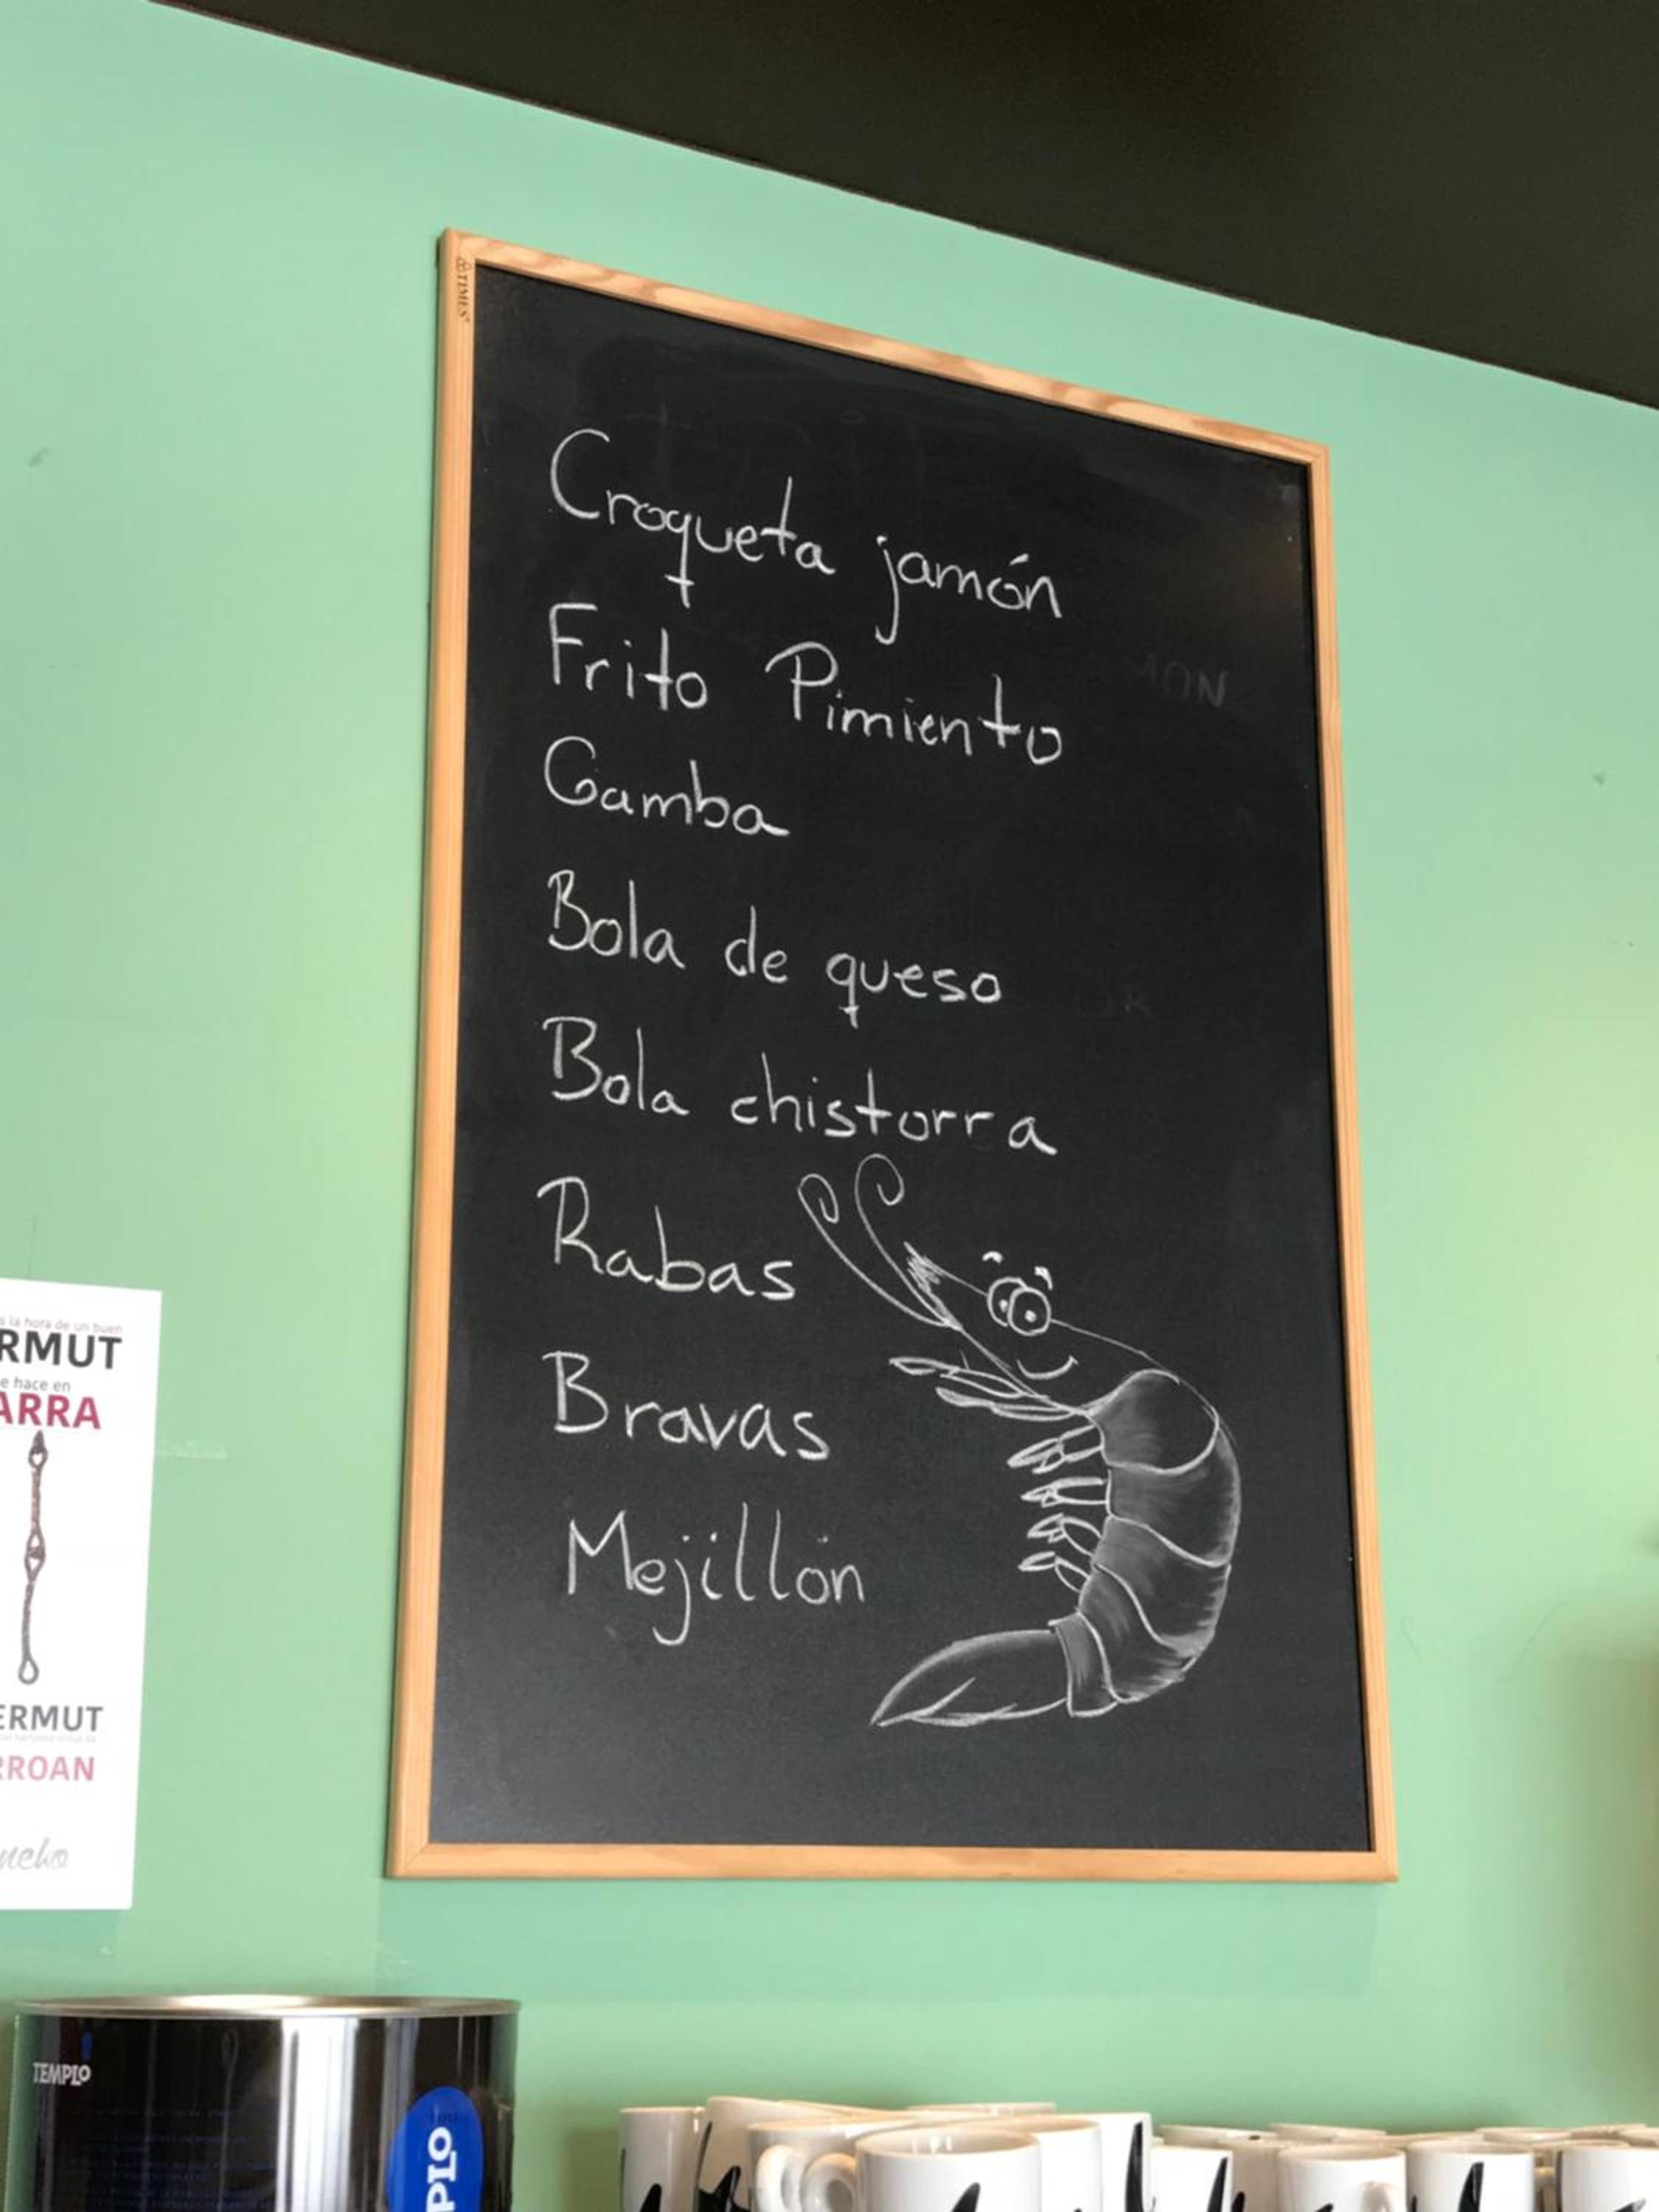 Croqueta jamón
Frito Pimiento
Gamba
Bola de queso
Bola chistorra
Rabas
Bravas
Mejillón
s la hora de un buen
RMUT
e hace en
ARRA
ERMUT
RROAN
neko
TEMPLO
PLO